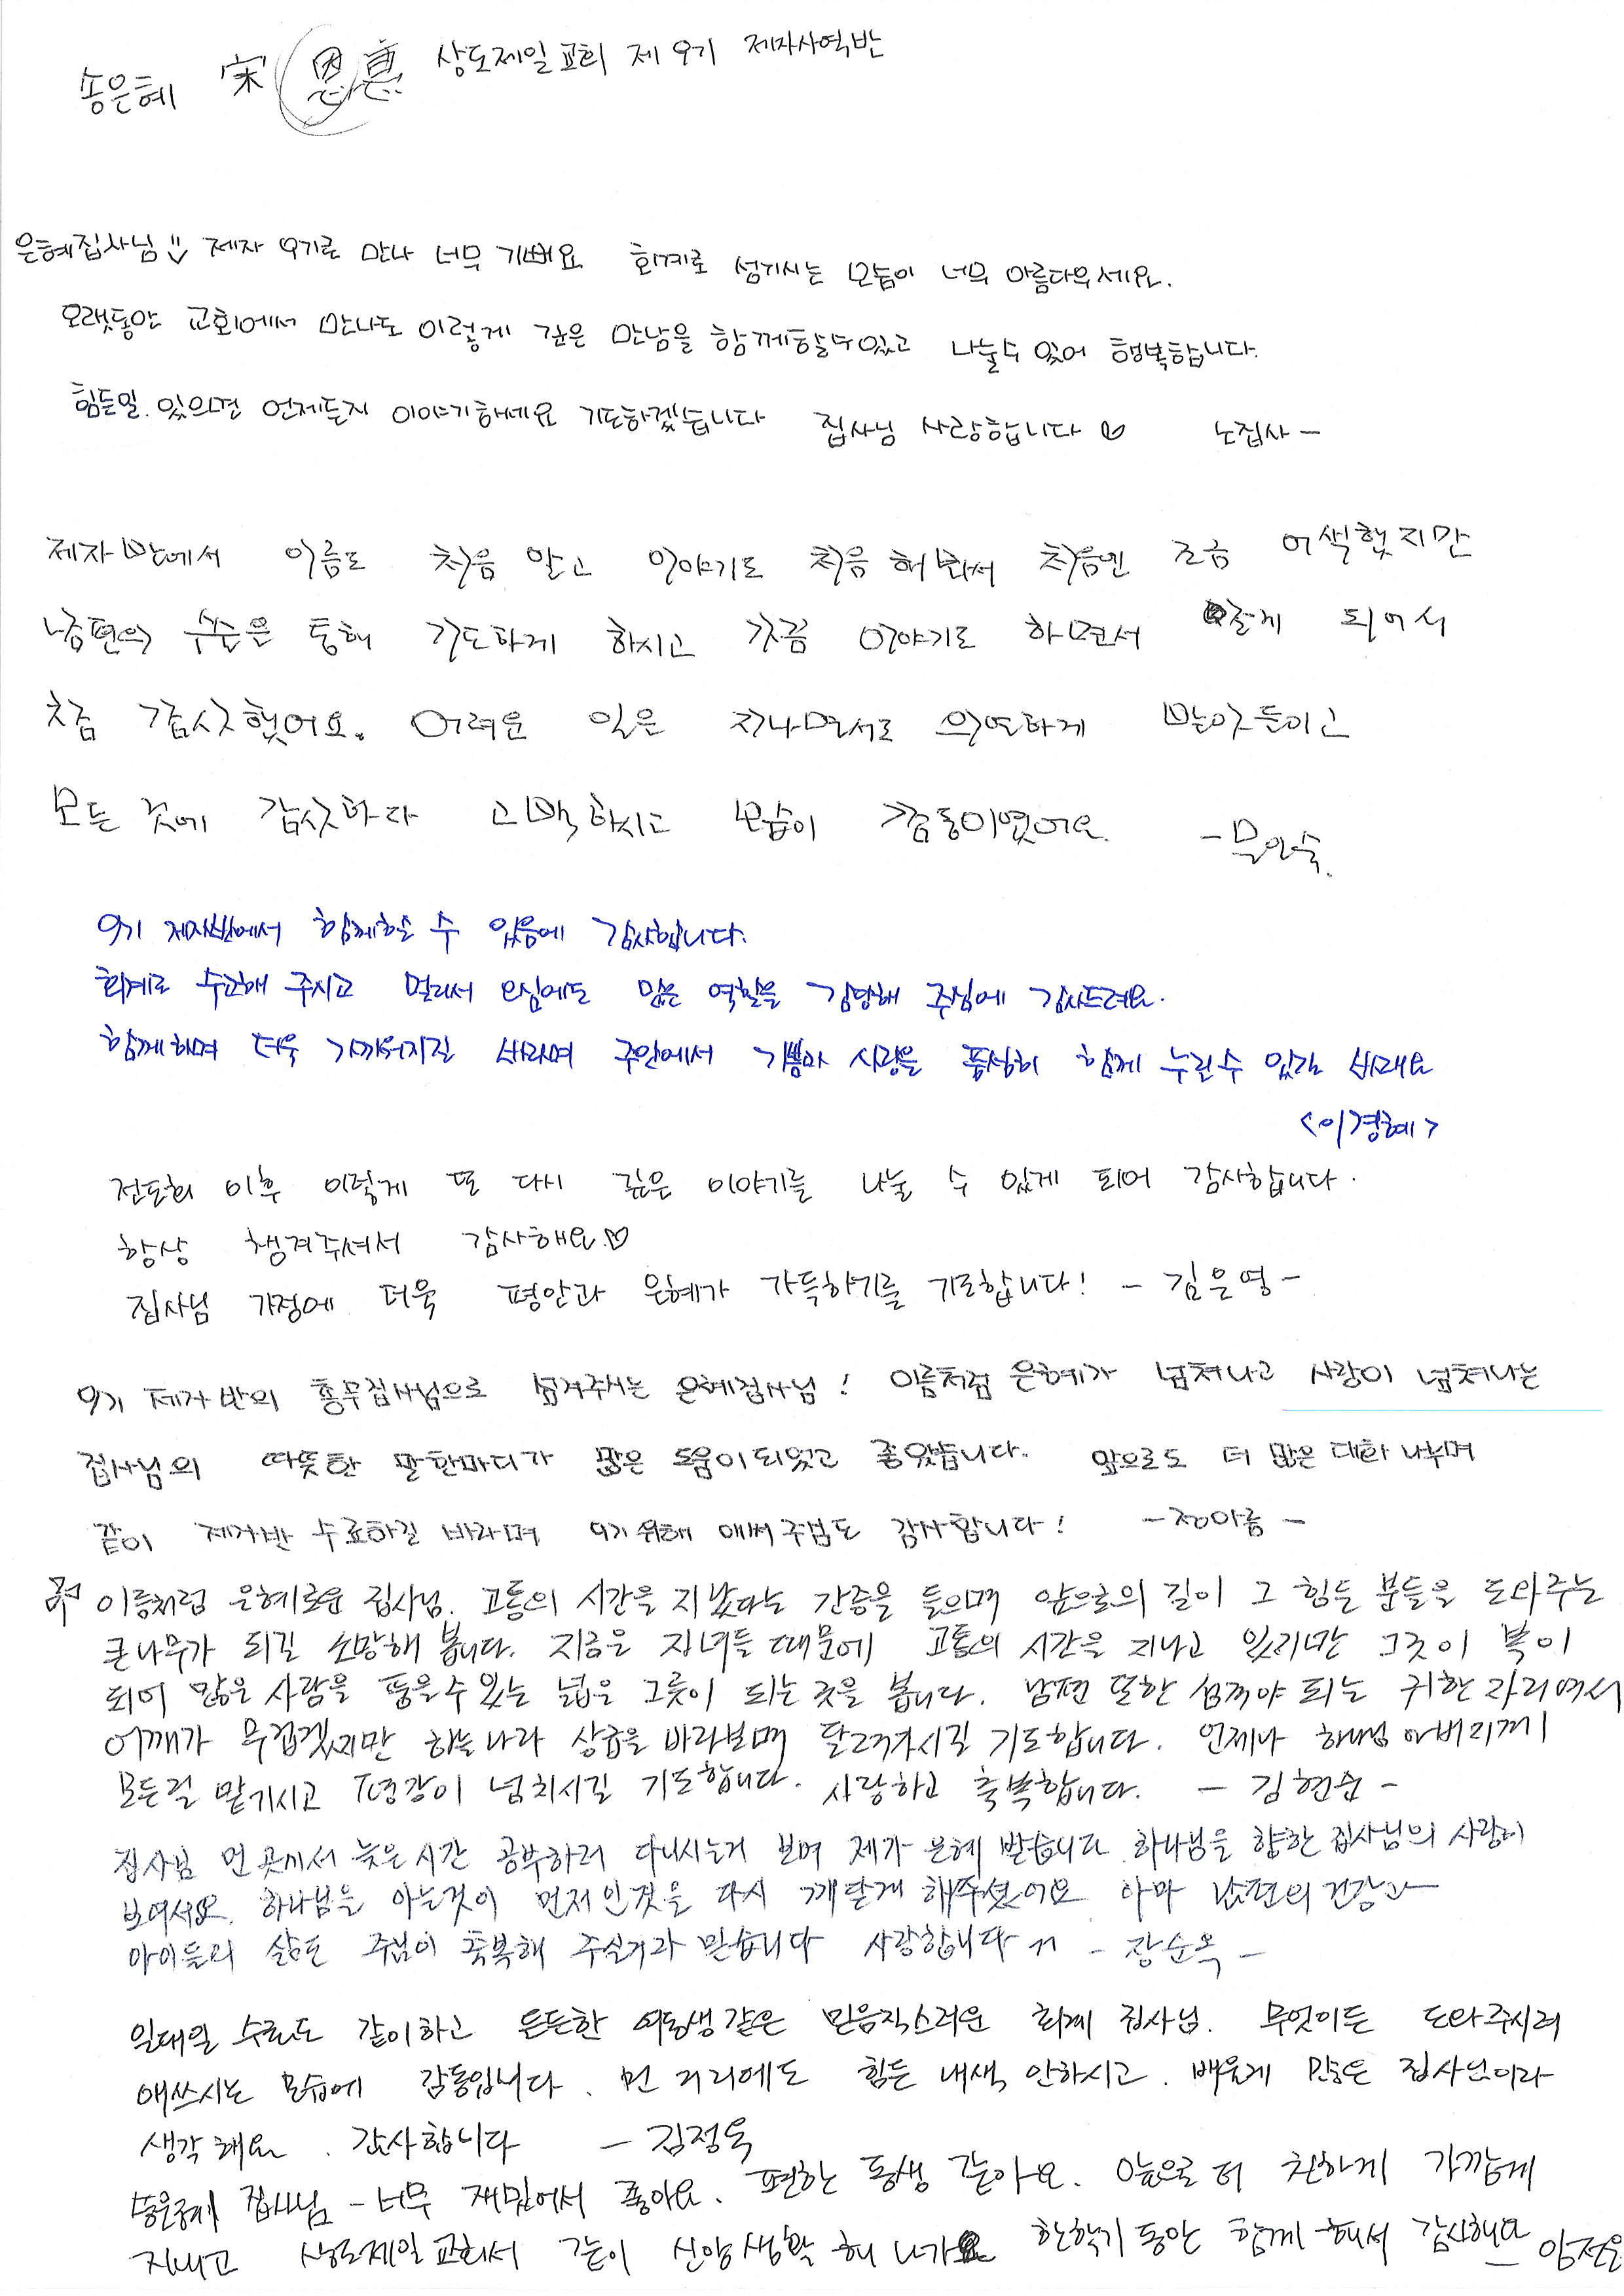 송은혜 宋 恩惠 상도제일교회 제 9기 제자사역반
은혜집사님 제자 9기로 만나 너무 기뻐요 회계로 섬기시는 모습이 너무 아름다우세요.
오랫동안 교회에서 만나도 이렇게 깊은 만남을 함께할수있고 나눌수 있어 행복합니다.
힘든일 있으면 언제든지 이야기하세요 기도하겠습니다 집사님 사랑합니다♡ 노집사-
제자반에서 이름도 처음 알고 이야기도 처음 해봐서 처음엔 조금 어색했지만
남편의 수술을 통해 기도하게 하시고 가끔 이야기도 하면서 알게 되어서
참 감사했어요. 어려운 일을 지나면서도 의연하게 받아들이고
모든 것에 감사하다 고백하시고 모습이 감동이였어요. -문인숙.
9기 제자반에서 함께하는 수 있음에 감사합니다.
회계로 수고해 주시고 멀리서 오심에도 많은 역할을 감당해 주심에 감사드려요.
함께하며 더욱 가까워지길 바라며 주안에서 기쁨과 사랑을 풍성히 함께 누릴수 있길 바래요
<이경혜>
전도회 이후 이렇게 또 다시 깊은 이야기를 나눌 수 있게 되어 감사합니다.
항상 챙겨주셔서 감사해요.♡
집사님 가정에 더욱 평안과 은혜가 가득하기를 기도합니다! - 김은영 -
9기 제자반의 총무집사님으로 섬겨주시는 은혜집사님! 이름처럼 은혜가 넘쳐나고 사랑이 넘쳐나는
집사님의 따뜻한 말한마디가 많은 도움이되었고 좋았습니다. 앞으로도 더 많은 대화 나누며
같이 제자반 수료하길 바라며 9기 위해 애써주심도 감사합니다! - 정아름 -
이름처럼 은혜로운 집사님. 고통의 시간을 지났다는 간증을 들으며 앞으로의 길이 그 힘든 분들을 도와주는
큰나무가 되길 소망해 봅니다. 지금은 자녀들 때문에 고통의 시간을 지나고 있지만 그것이 복이
되어 많은 사람을 품을수있는 넓은 그릇이 되는 것을 봅니다. 남편 또한 섬겨야 되는 귀한 자리여서
어깨가 무겁겠지만 하늘나라 상급을 바라보며 달려가시길 기도합니다. 언제나 하나님 아버지께
모든걸 맡기시고 평강이 넘치시길 기도합니다. 사랑하고 축복합니다. - 김현순 -
집사님 먼 곳에서 늦은시간 공부하러 다니시는거 보며 제가 은혜 받습니다. 하나님을 향한 집사님의 사랑이
보여서요. 하나님을 아는것이 먼저인것을 다시 깨닫게 해주셨어요 아마 남편의 건강과
아이들의 삶도 주님이 축복해 주실거라 믿습니다 사랑합니다 ㄲ - 장순옥 -
일대일 수료도 같이하고 든든한 여동생같은 믿음직스러운 회계 집사님. 무엇이든 도와주시려
애쓰시는 모습에 감동입니다. 먼 거리에도 힘든 내색 안하시고. 배울게 많은 집사님이라
생각해요. 감사합니다 - 김정옥
송은혜 집사님 - 너무 재밌어서 좋아요. 편한 동생 같아요. 앞으로 더 친하게 가깝게
지내고 상도제일교회서 같이 신앙생활 해 나가요 한학기동안 함께 해서 감사해요